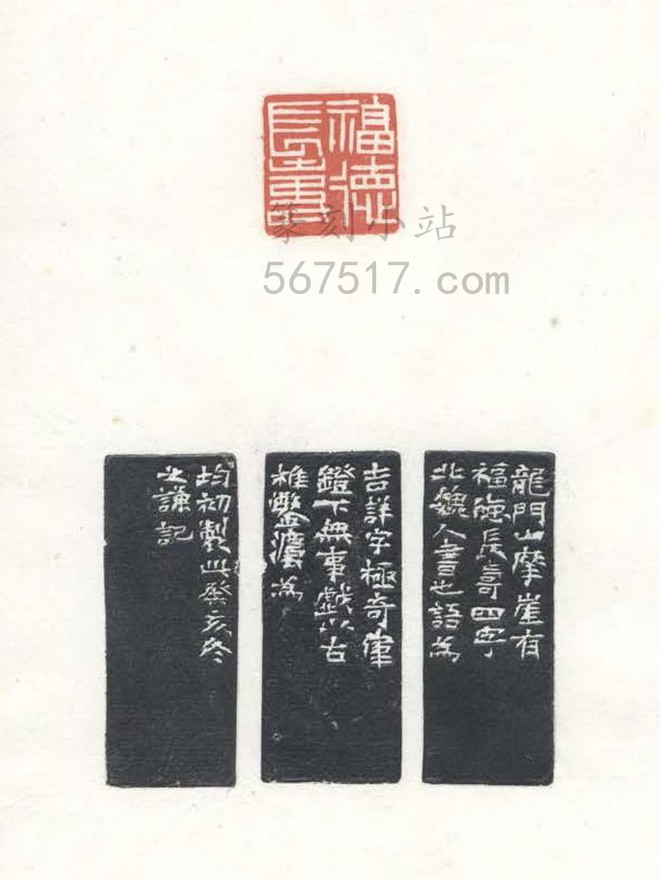 福德
長壽
篆刻小站
567517.com
龍門山摩崖有
福德長壽四字
北魏人書也語為
吉詳字極奇偉
鐙下無事戲以古
椎鑿灋為
均初製此癸亥冬
之謙記